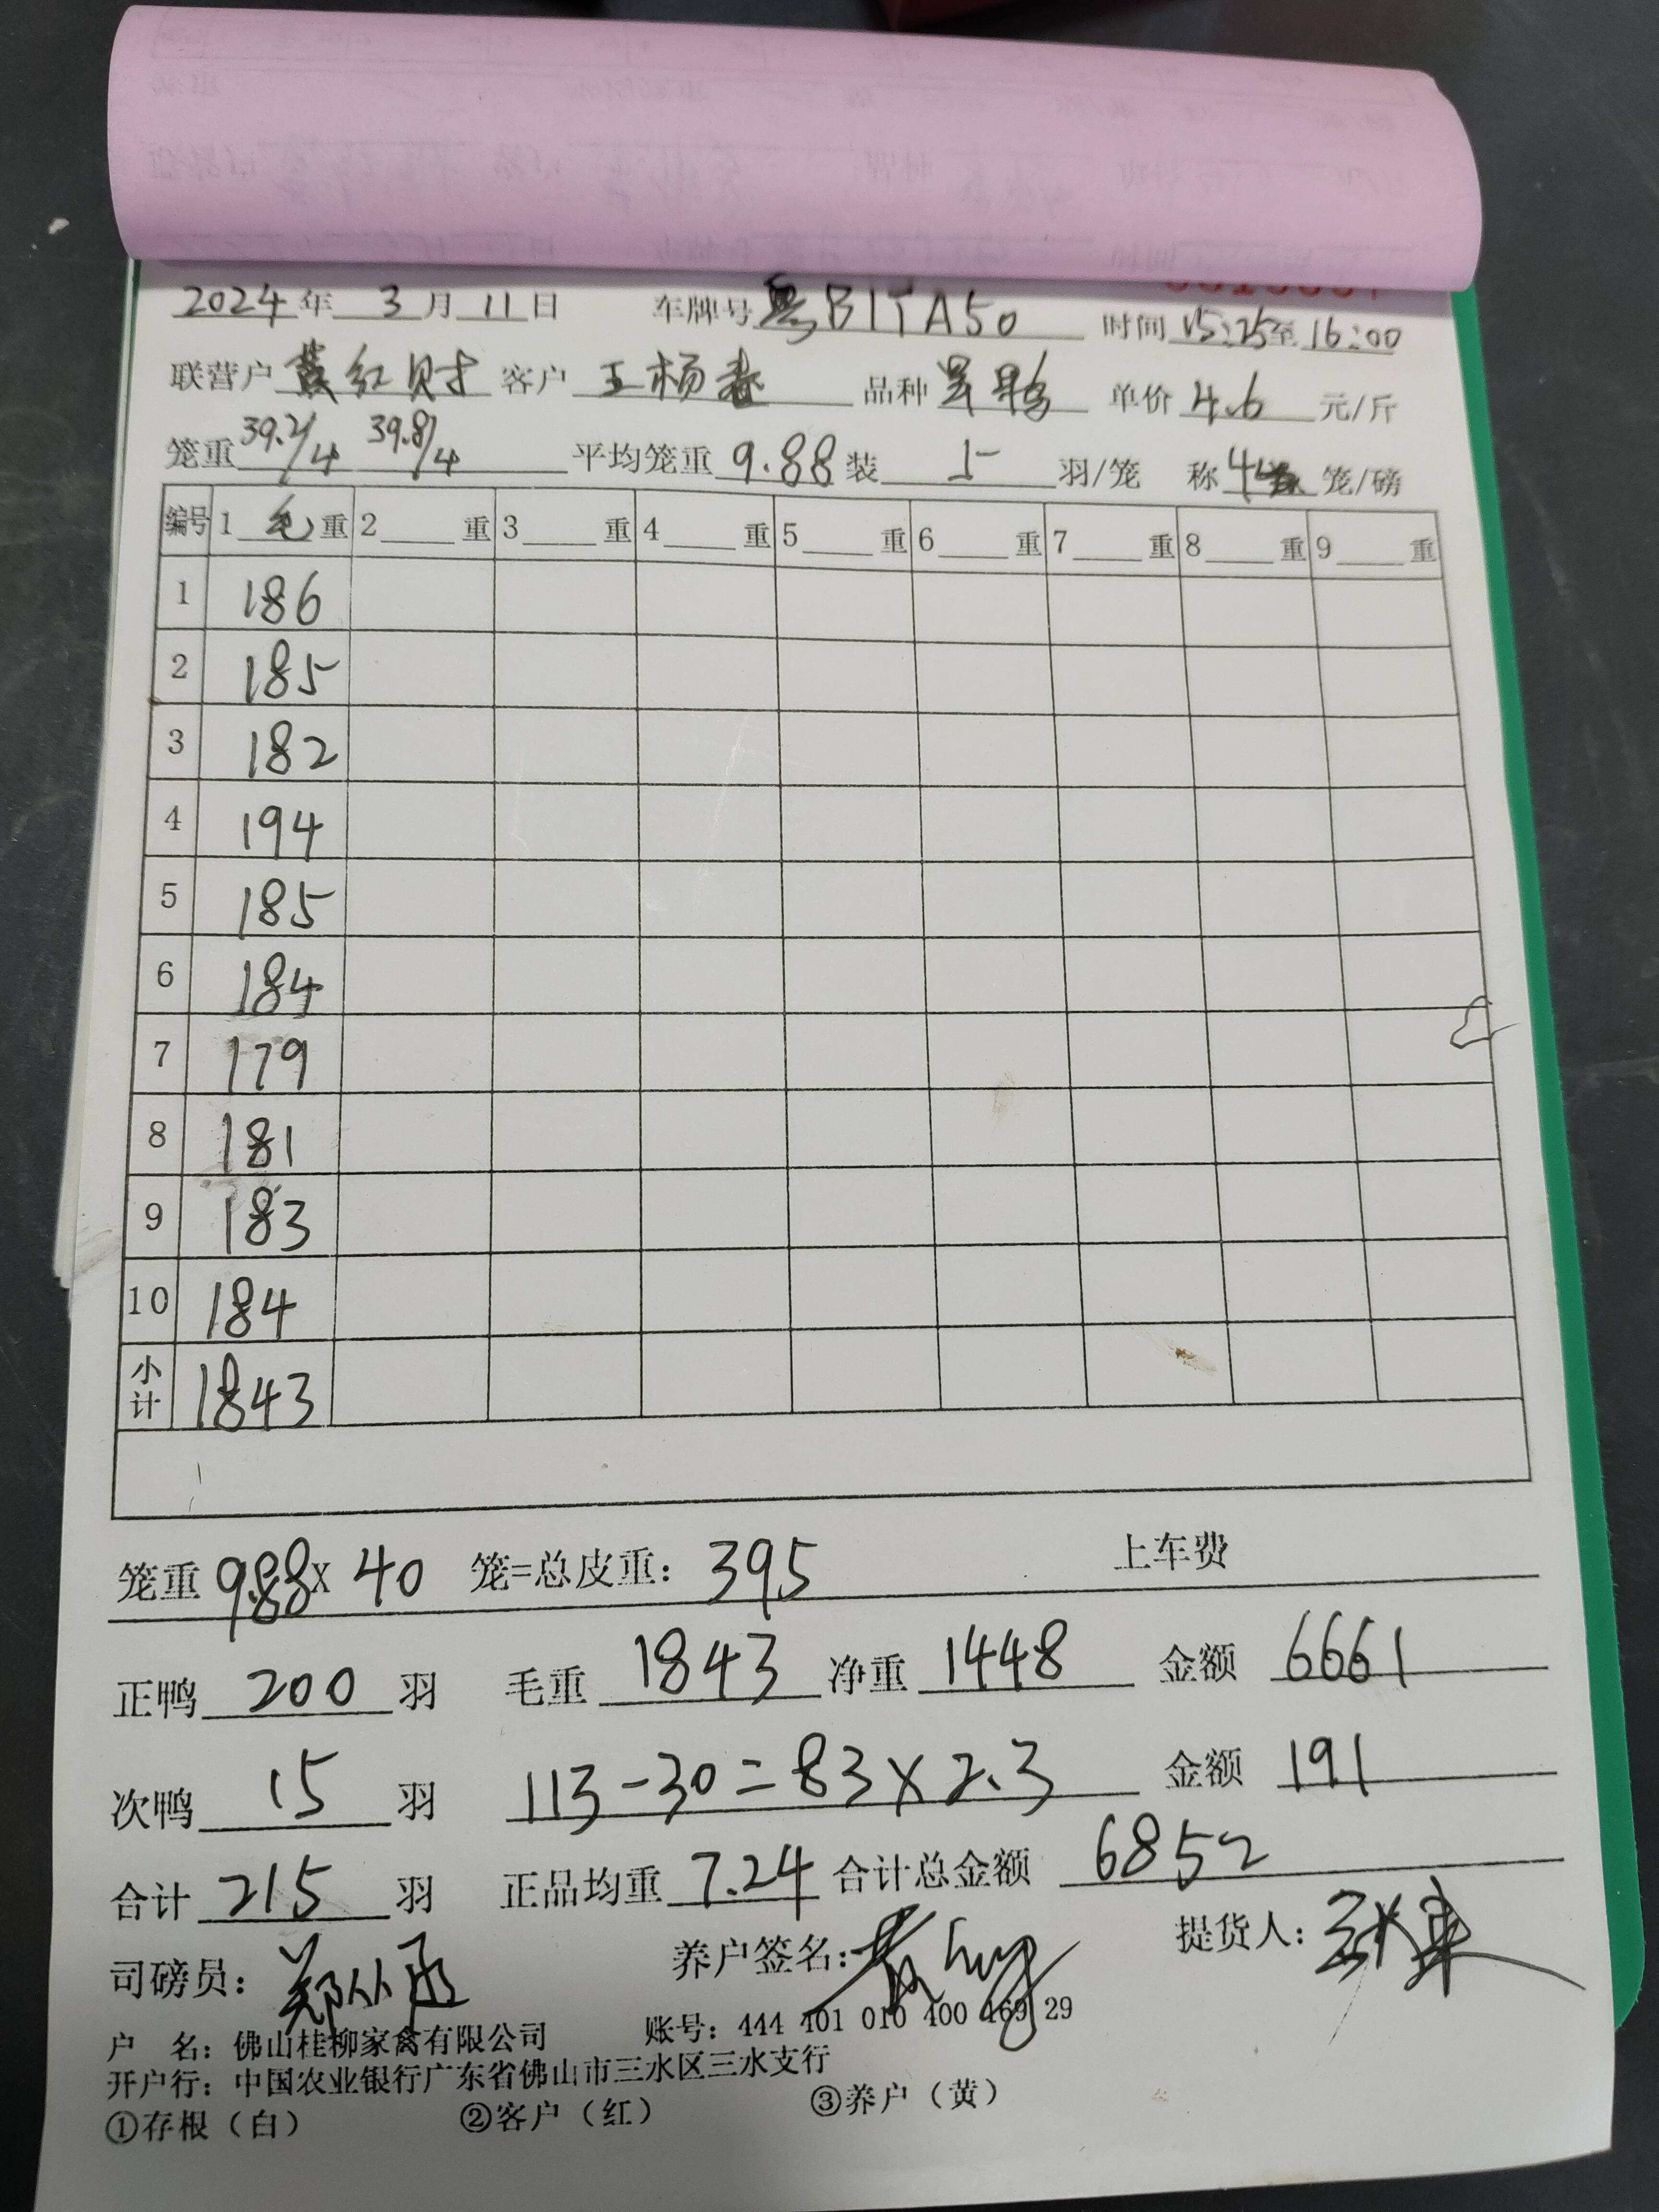 2024年 3月11日 车牌号 粤B1TA50 时间15:25至16:00
联营户 黄红财 客户 王杨春 品种 单价 4.6 元/斤
笼重 39.2/4 39.8/4 平均笼重 9.88 装 5 羽/笼 称 4 笼/磅
编号 1 毛 重 2 重 3 重 4 重 5 重 6 重 7 重 8 重 9 重
1 186
2 185
3 182
4 194
5 185
6 184
7 179
8 181
9 183
10 184
小计 1843
笼重 9.88 x 40 笼=总皮重: 395 上车费
正鸭 200 羽 毛重 1843 净重 1448 金额 6661
次鸭 15 羽 113-30=83×2.3 金额 191
合计 215 羽 正品均重 7.24 合计总金额 6852
司磅员: 养户签名: 提货人:
户 名: 佛山桂柳家禽有限公司 账号: 444 401 010 400 169 29
开户行: 中国农业银行广东省佛山市三水区三水支行
①存根（白） ②客户（红） ③养户（黄）